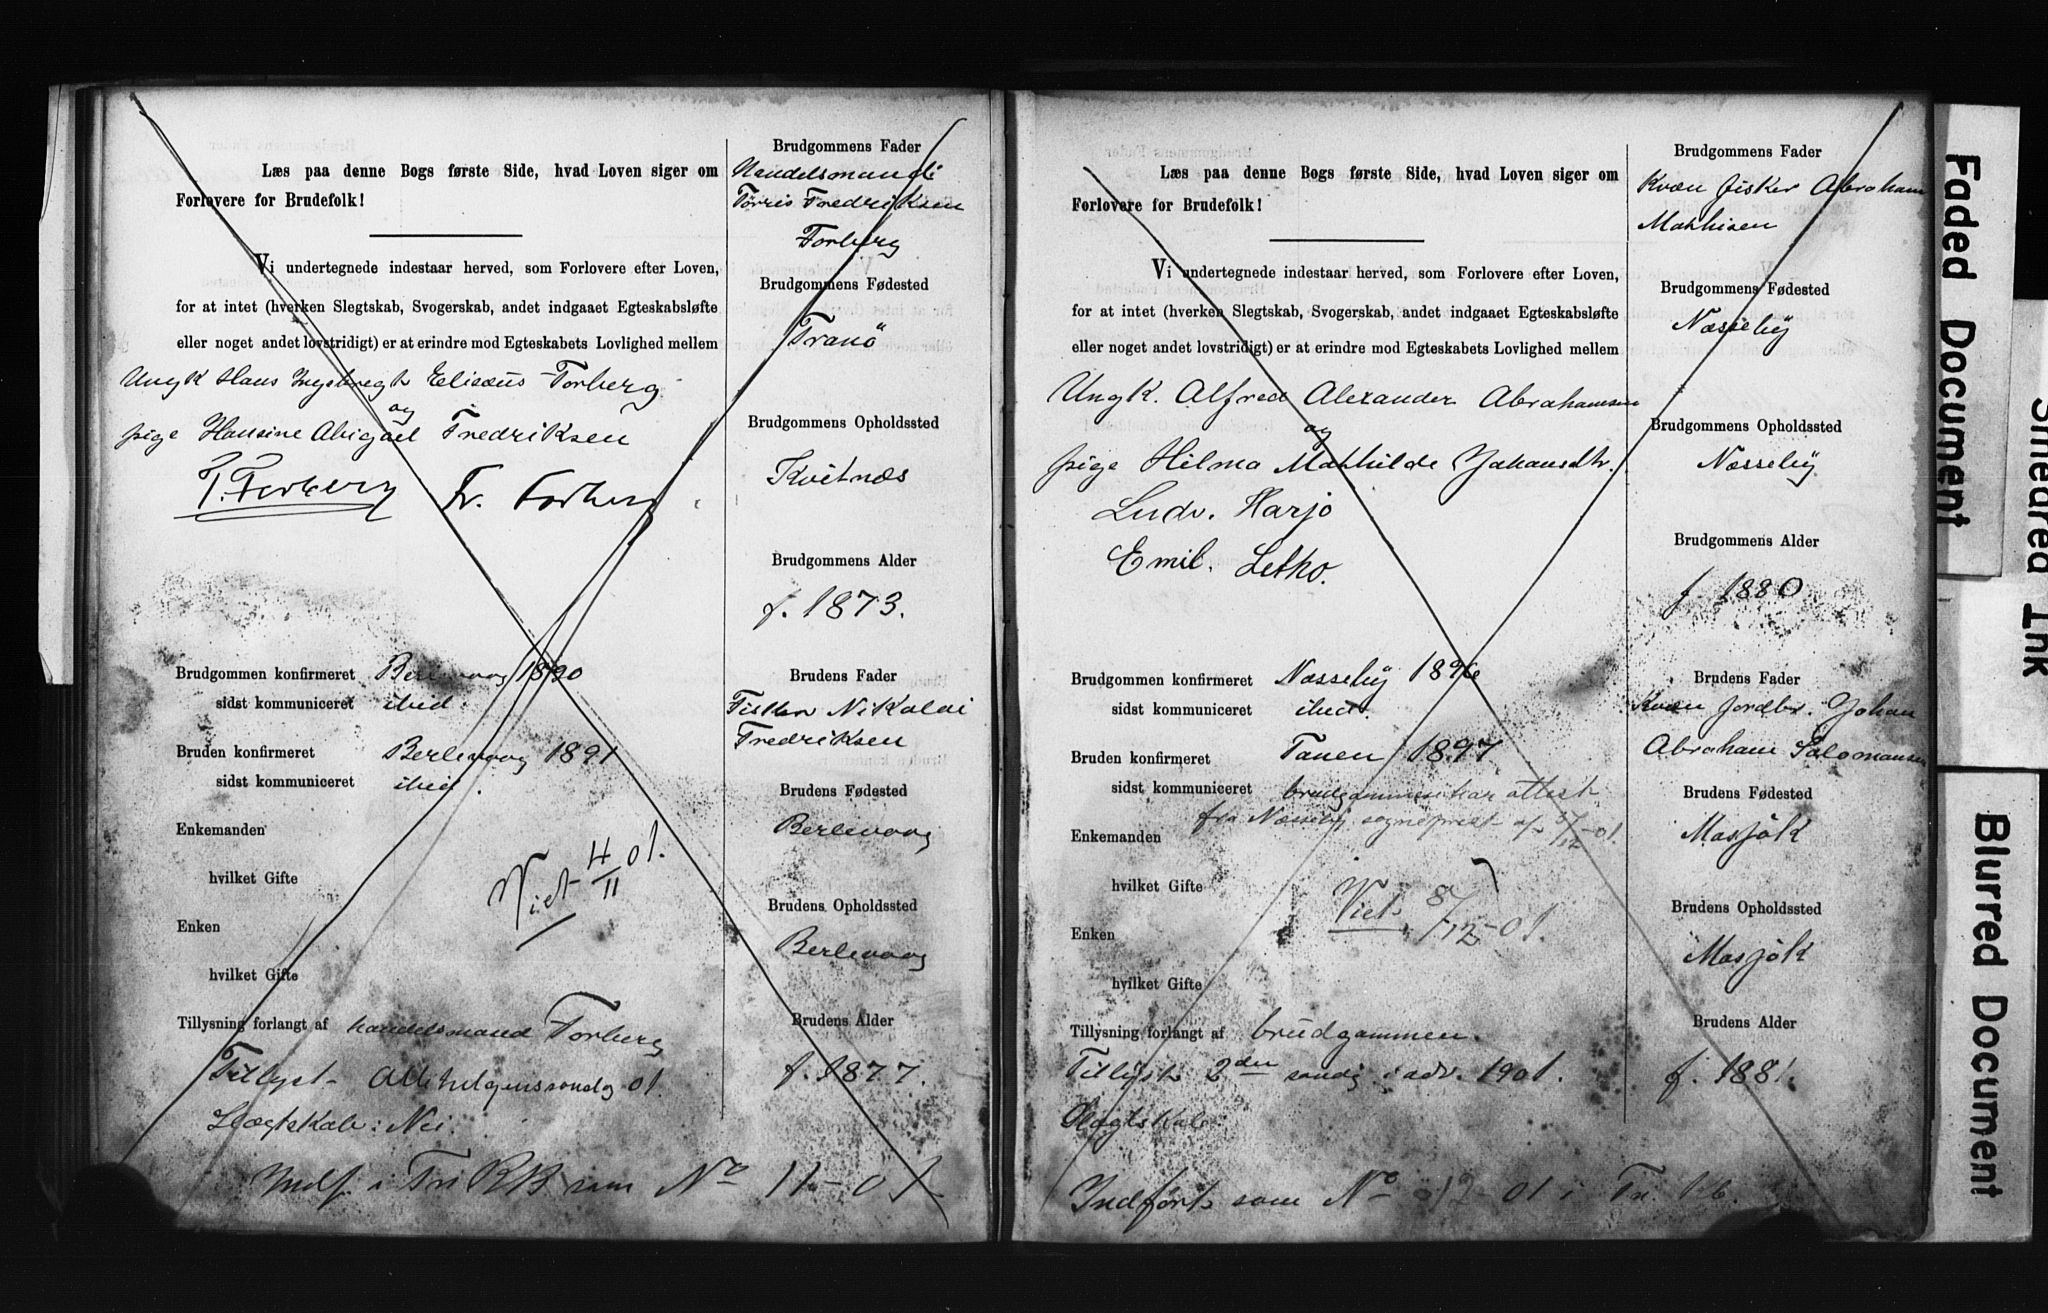 Læs paa denne Bogs første Side, hvad Loven siger om
Forlovere for Brudefolk!
Vi undertegnede indestaar herved, som Forlovere efter Loven,
for at intet (hverken Slegtskab, Svogerskab, andet indgaaet Egteskabsløfte
eller noget andet lovstridigt) er at erindre mod Egteskabets Lovlighed mellem
Ungk Hans Ingebregt Elisæus Torberg
og
pige Hansine Abigael Fredriksen
T. Torberg Fr. Torberg
Brudgommen konfirmeret Berlevaag 1890
sidst kommuniceret ibid.
Bruden konfirmeret Berlevaag 1891
sidst kommuniceret ibid.
Enkemanden
hvilket Gifte
Viet 4/11 01.
Enken
hvilket Gifte
Tillysning forlangt af handelsmand Torberg
Tillyst Allehelgenssondg 01.
Slægtskab: Nei.
Indf. i Tn KB som No 11-01
Brudgommens Fader
Handelsmand
Tørris Fredriksen
Torberg
Brudgommens Fødested
Tranö
Brudgommens Opholdssted
Kvitnæs
Brudgommens Alder
f. 1873.
Brudens Fader
Fisker Nikolai
Fredriksen
Brudens Fødested
Berlevaag
Brudens Opholdssted
Berlevaag
Brudens Alder
f. 1877.
Læs paa denne Bogs første Side, hvad Loven siger om
Forlovere for Brudefolk!
Vi undertegnede indestaar herved, som Forlovere efter Loven,
for at intet (hverken Slegtskab, Svogerskab, andet indgaaet Egteskabsløfte
eller noget andet lovstridigt) er at erindre mod Egteskabets Lovlighed mellem
Ungk. Alfred Alexander Abrahamsen
og
pige Hilma Mathilde Johansdtr.
Ludv. Harjo
Emil. Letho.
Brudgommen konfirmeret Næsseby 1896
sidst kommuniceret ibid.
Bruden konfirmeret Tanen 1897
sidst kommuniceret brudgommen har attest
fra Næsseby sogneprest af /12-01.
Enkemanden
hvilket Gifte
Viet 8/12-01.
Enken
hvilket Gifte
Tillysning forlangt af brudgommen.
Tillyst 2den søndg i adv. 1901.
Slægtskab
Indført som No 12-01 i Tn. Kb.
Brudgommens Fader
Kvæn fisker Abraham
Mathisen
Brudgommens Fødested
Næsseby
Brudgommens Opholdssted
Næsseby
Brudgommens Alder
f. 1880.
Brudens Fader
Kvæn Jordbr. Johan
Abraham Salomonsen
Brudens Fødested
Masjok
Brudens Opholdssted
Masjok
Brudens Alder
f. 1881.
Faded Document
Smeared Ink
Blurred Document